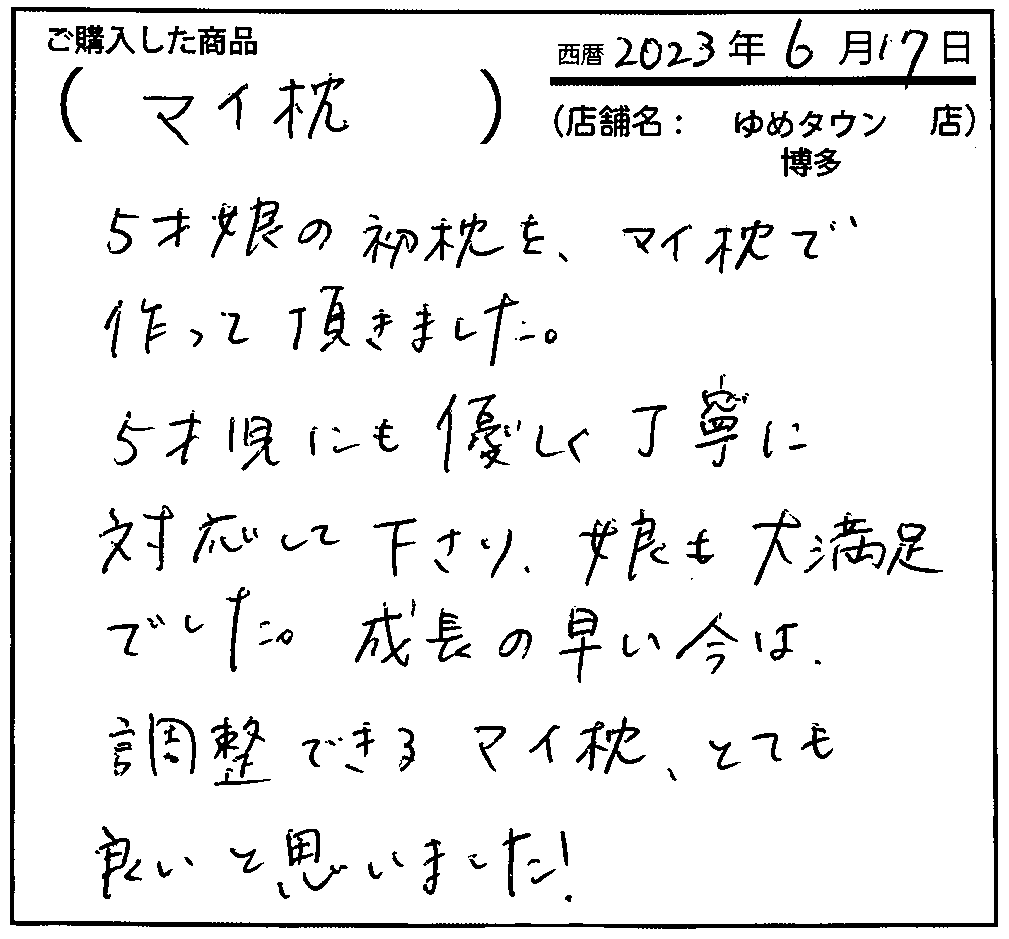 ご購入した商品
西暦 2023年6月17日
( マイ枕 )
(店舗名: ゆめタウン 店)
博多
5才娘の初枕を、マイ枕で
作って頂きました。
5才児にも優しく丁寧に
対応して下さり、娘も大満足
でした。成長の早い今は、
調整できるマイ枕、とても
良いと思いました!